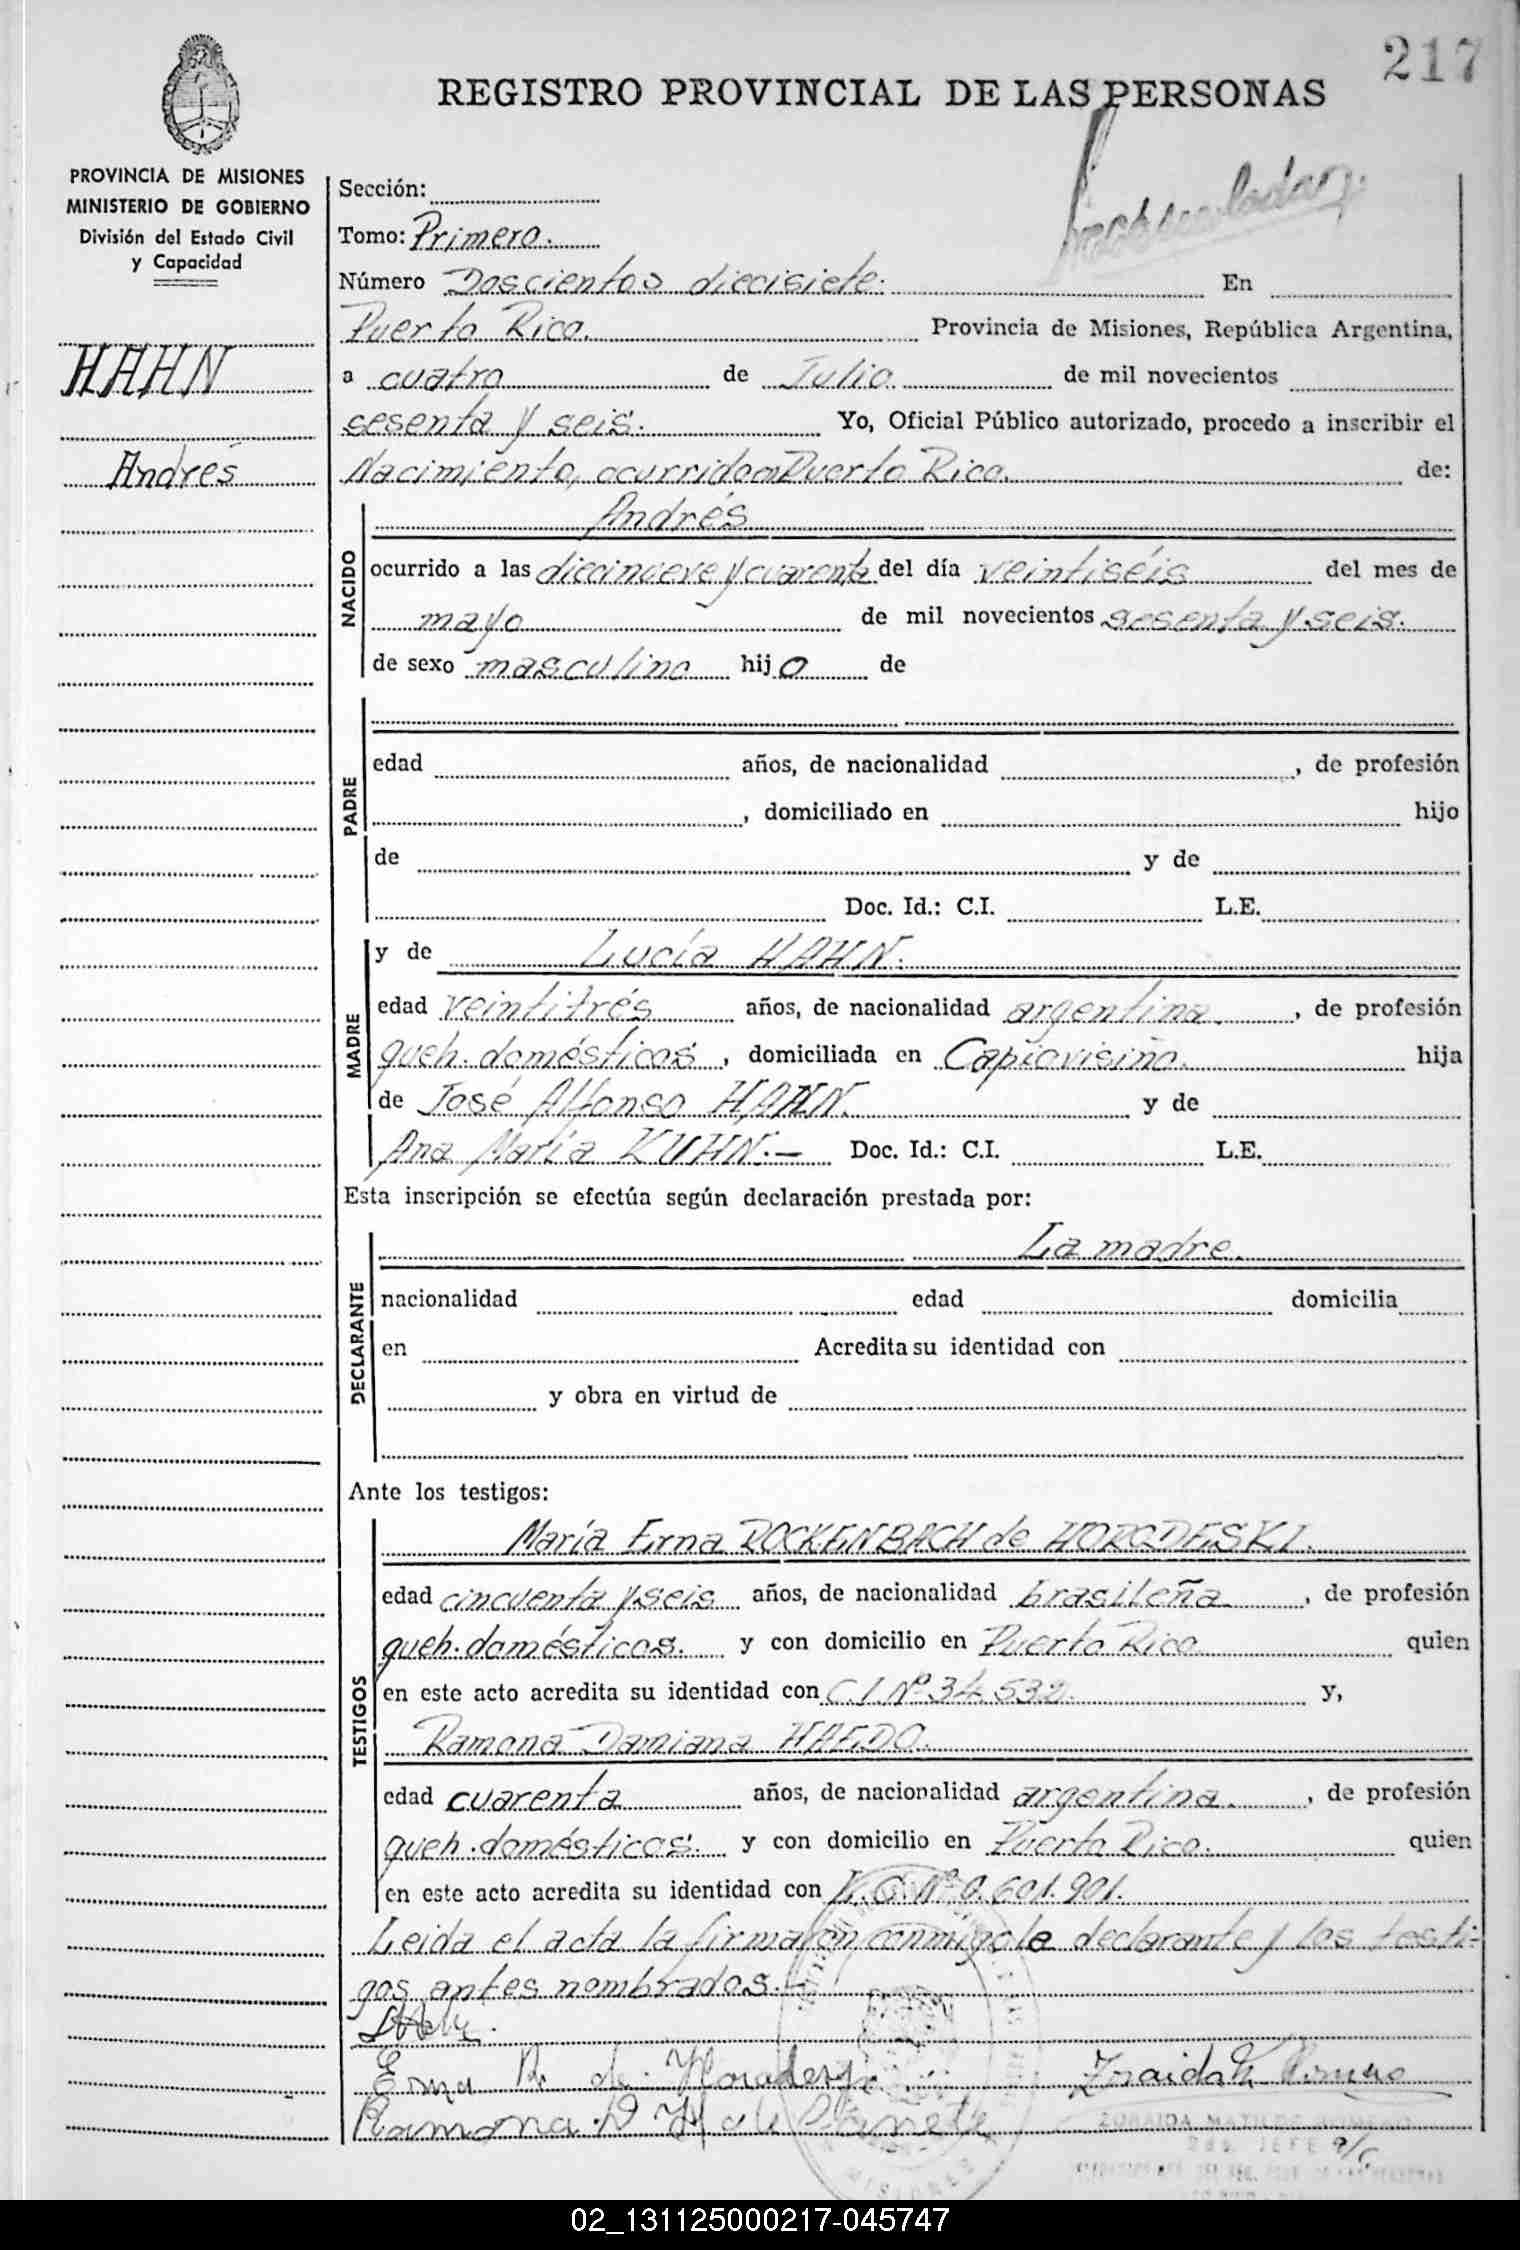 217
REGISTRO PROVINCIAL DE LAS PERSONAS
PROVINCIA DE MISIONES
MINISTERIO DE GOBIERNO
División del Estado Civil
y Capacidad
HAHN
Andrés
Sección:
Tomo: Primero.
Número Doscientos diecisiete. En
Puerto Rico. Provincia de Misiones, República Argentina,
a cuatro de Julio de mil novecientos
sesenta y seis. Yo, Oficial Público autorizado, procedo a inscribir el
Nacimiento, ocurrido en Puerto Rico. de:
NACIDO
Andrés
ocurrido a las diecinueve y cuarenta del día veintiséis del mes de
mayo de mil novecientos sesenta y seis.
de sexo masculino hijo de
PADRE
edad años, de nacionalidad , de profesión
, domiciliado en hijo
de y de
Doc. Id.: C.I. L.E.
MADRE
y de Lucía HAHN.
edad veintitrés años, de nacionalidad argentina. , de profesión
queh. domésticos , domiciliada en Capiovisiño. hija
de José Alfonso HAHN. y de
Ana María KUHN.- Doc. Id.: C.I. L.E.
Esta inscripción se efectúa según declaración prestada por:
DECLARANTE
La madre.
nacionalidad edad domicilia
en Acredita su identidad con
y obra en virtud de
Ante los testigos:
TESTIGOS
María Erna ROCKENBACH de HORODESKI.
edad cincuenta y seis años, de nacionalidad brasileña , de profesión
queh. domésticos. y con domicilio en Puerto Rico quien
en este acto acredita su identidad con C.I.Nº 34.532. y,
Ramona Damiana HAEDO.
edad cuarenta años, de nacionalidad argentina. , de profesión
queh. domésticos. y con domicilio en Puerto Rico. quien
en este acto acredita su identidad con L.C.Nº 0.601.901.
Leida el acta la firmaron conmigo la declarante y los testi-
gos antes nombrados.-
Erna R. de Horodeski
Ramona D H de
ZORAIDA
JEFE
MISIONES
02_131125000217-045747